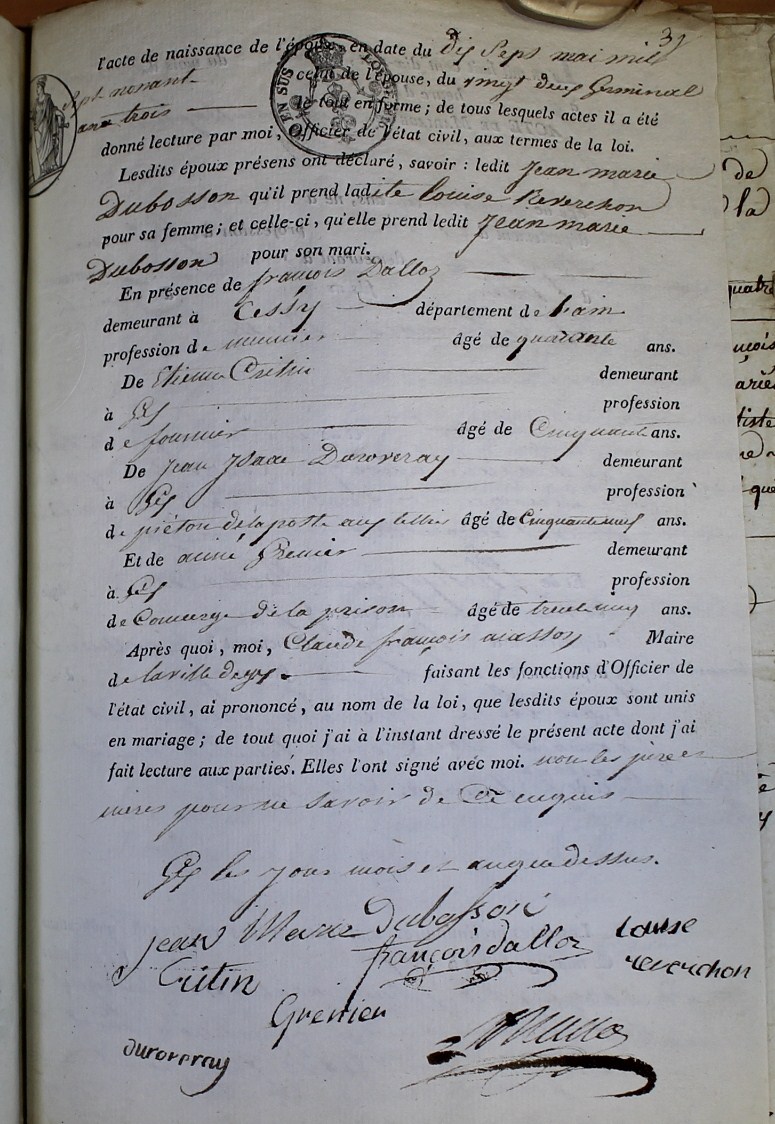 37
l'acte de naissance de l'épouse, en date du dix Sept mai mil
Sept nonant celui de l'épouse, du vingt deux Germinal
an trois le tout en forme; de tous lesquels actes il a été
donné lecture par moi, Officier de l'état civil, aux termes de la loi.
Lesdits époux présens ont déclaré, savoir : ledit Jean marie
Dubosson qu'il prend ladite louise Reverchon
pour sa femme; et celle-ci, qu'elle prend ledit Jean marie
Dubosson pour son mari.
En présence de françois Dalloz
demeurant à Cessy département de l'ain
profession de meunier âgé de quarante ans.
De Etienne Critin demeurant
à Gex profession
de fournier âgé de Cinquante ans.
De Jean Isaac Duroveray demeurant
à Gex profession
de piéton de la poste aux lettres âgé de Cinquante neuf ans.
Et de aimé Grenier demeurant
à Gex profession
de Concierge de la prison âgé de trente cinq ans.
Après quoi, moi, Claude françois Masson Maire
de la ville de gex faisant les fonctions d'Officier de
l'état civil, ai prononcé, au nom de la loi, que lesdits époux sont unis
en mariage; de tout quoi j'ai à l'instant dressé le présent acte dont j'ai
fait lecture aux parties. Elles l'ont signé avec moi. non les pères et
mères pour ne savoir de Ce enquis
Gex les jour mois et an que dessus.
Jean Marie Dubosson
françois dalloz
Louise
reverchon
Critin
Grenier
duroveray